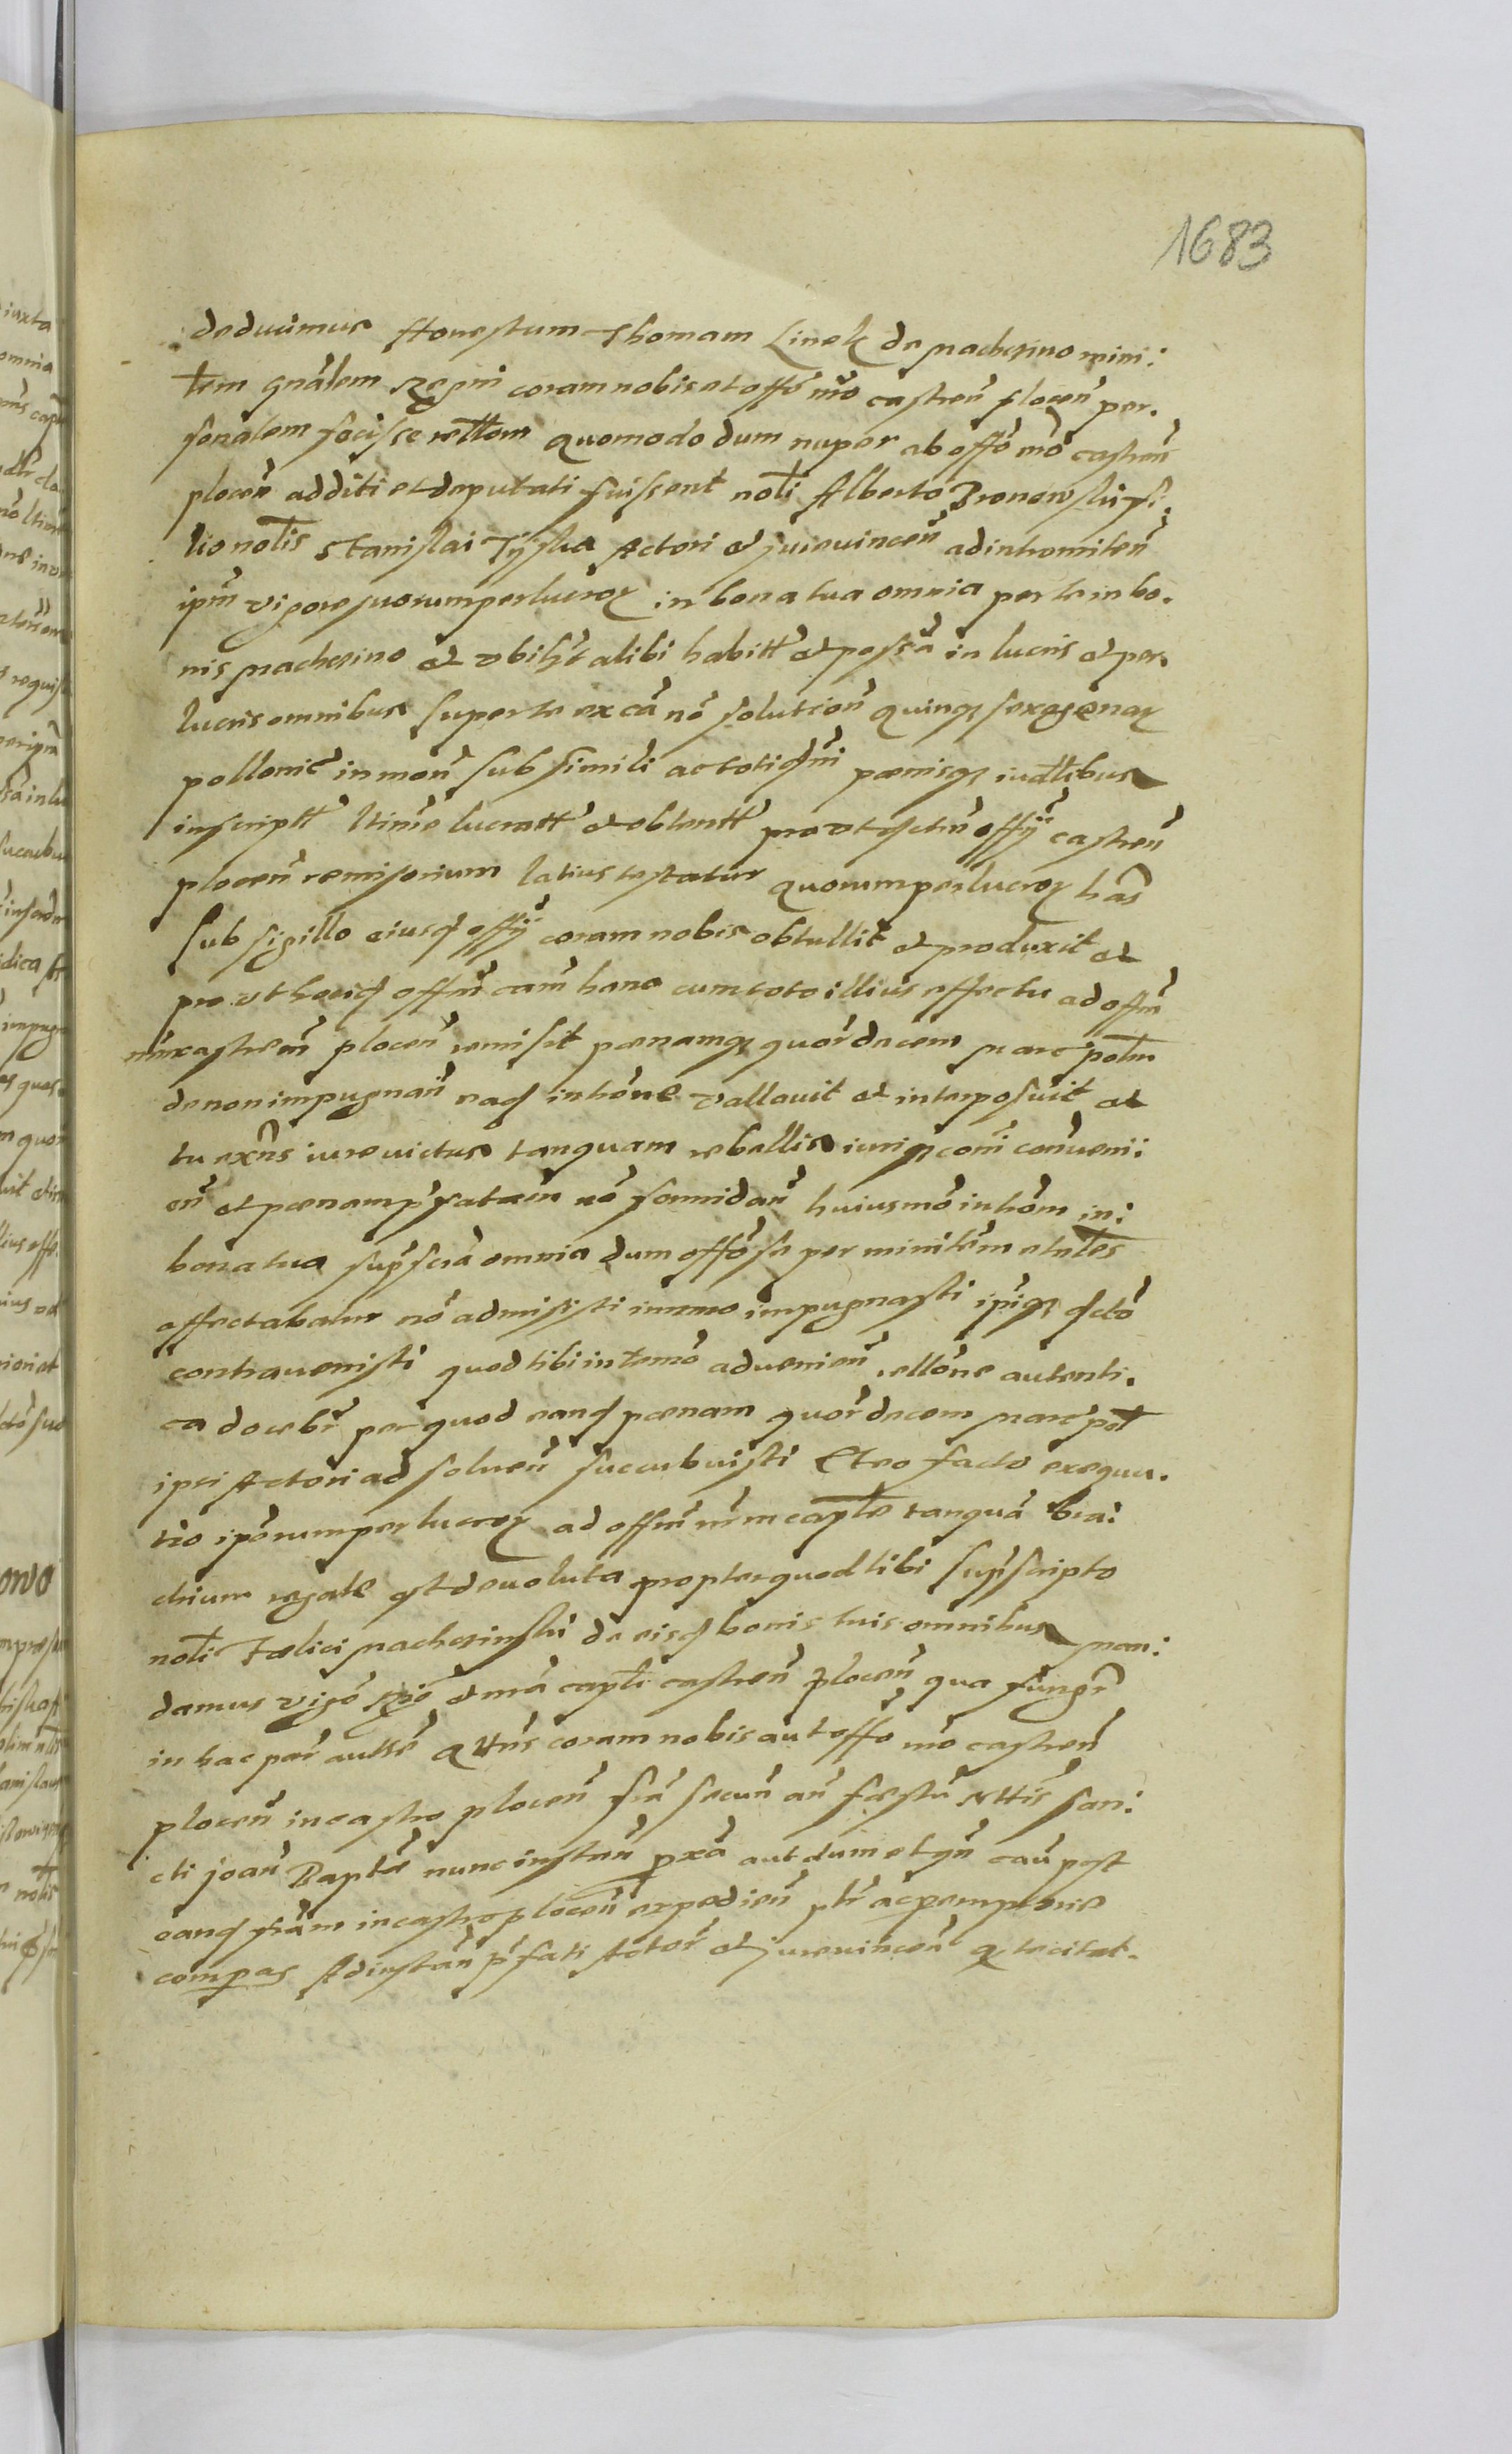 1683
deducimus Honestum Thomam Linek de pachczino mini:
tem gnãlem Regni coram nobis et offõ nro castreñ ploceñ per.
sonalem fecisse rellõem Quomodo dum nuper ab offõ nrõ castreñ
ploceñ additi et deputati fuissent nobli Alberto Bronowski fi.
lio nobilis Stanislai Tÿska Actori et jurevinceñ ad intromiteñ
ipm̃ vigore suorum perlucroꝝ in bona tua omnia per te in bo.
nis pachczino et vbilibet alibi habitt̃ et possã in lucris et per
lucris omnibus super te ex cã nõ solutioñ Quinqꝫ sexagenaꝝ
pollonic̃ in moñ sub simili ac toti dñi pœnisqꝫ iudllibus
inscriptt̃ ltime lucratt̃ et obtentt̃ pro vt dictũ offÿ castreñ
ploceñ remisorium latius testatur Quorum perlucroꝝ lras̃
sub sigillo eiusdꝫ offÿ coram nobis obtullit et produxit et
pro vt hocidꝫ offm̃ cam̃ hanc cum toto illius effectu ad offm̃
nrm̃ castreñ ploceñ remisit pœnamqꝫ quor̃decem marc̃ poll̃m
de non impugnañ eadꝫ introñe vallauit et interposuit et
tu exñs iurevictus tanquam rebellis iuriqꝫ coni̇ contraveni:
eñ et pœnam p̃fatam nõ formidañ huiusmõ introm̃ in:
bona tua sup̃scrã omnia dum offõse per minitẽm et nbles
affectabatur nõ admisisti immo impugnasti ipiqꝫ dictõ
contravenisti quod tibi in termõ advenieñ rellõne autenti.
ca docebr̃ per quod eandꝫ pœnam quor̃decem marc̃ poll̃
ipsi Actori ad solueñ succubuisti Et eo facto exequu.
tio ipõrum perlucroꝝ ad offm̃ nrm̃ capl̃e tanquã bra:
chium regale est devoluta propter quod tibi sup̃scripto
nobli Fœlici pachczinski de eisdꝫ bonis tuis omnibus man:
damus vigõ Regiẽ et nrã capli̇ castreñ Ploceñ qua fungr̃
in hac par̃ autt̃e Qttñs coram nobis aut offõ nrõ castreñ
ploceñ in castro ploceñ fr̃a secuñ añ fœstũ Ntt̃is san:
cti joañ Baptẽ nunc instañ pxã aut dum et qñ cañ post
eandꝫ fr̃am in castro ploceñ expedieñ pltr̃ ac pemptorie
compas Ad instañ p̃fati Actor̃ et jurevinceñ q te citat.